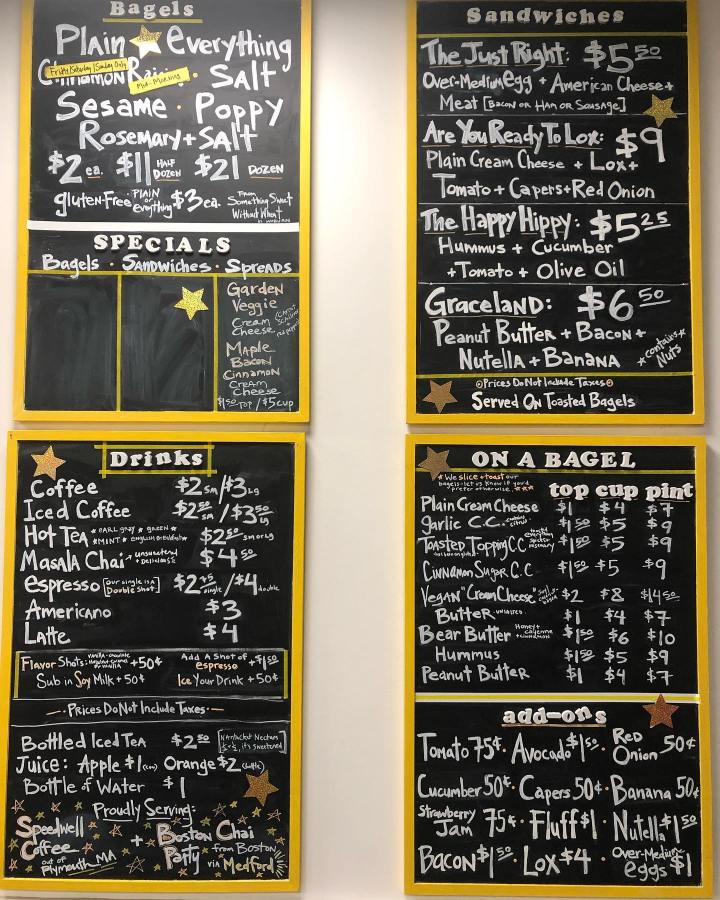 Bagels
Plain everything
Cinnamon
Fri/Saturday/Sunday Only
Mid-Morning
Salt
Sesame · Poppy
Rosemary + Salt
$2 ea. $11 HALF DOZEN $21 DOZEN
gluten-Free PLAIN or everything $3 ea. From Something Sweet Without Wheat
SPECIALS
Bagels · Sandwiches · Spreads
Garden
Veggie
Cream
Cheese
Maple
Bacon
Cinnamon
Cream
Cheese
$1.50 TOP / $5 CUP
Sandwiches
The Just Right: $5 50
Over-Medium egg + American Cheese +
Meat [Bacon or Ham or Sausage]
Are You Ready To Lox: $9
Plain Cream Cheese + Lox +
Tomato + Capers + Red Onion
The Happy Hippy: $5 25
Hummus + Cucumber
+ Tomato + Olive Oil
Graceland: $6 50
Peanut Butter + Bacon +
Nutella + Banana
* contains Nuts *
Prices Do Not Include Taxes
Served On Toasted Bagels
Drinks
Coffee $2 SM / $3 LG
Iced Coffee $2 50 SM / $3 50 LG
Hot Tea * EARL GRAY * GREEN * $2 50 SM or LG
* MINT * ENGLISH BREAKFAST *
Masala Chai unsweetened + Delicious $4 50
espresso [our single is a Double Shot] $2 75 single / $4 double
Americano $3
Latte $4
Flavor Shots: +50¢ Add A Shot of espresso +$1 50
Sub in Soy Milk +50¢ Ice Your Drink +50¢
Prices Do Not Include Taxes
Bottled Iced Tea $2 50 [Nantucket Nectars ½+½, it's sweetened]
Juice: Apple $1 Orange $2 (bottle)
Bottle of Water $1
Proudly Serving:
Speedwell Coffee out of Plymouth, MA + Boston Chai Party from Boston via Medford
ON A BAGEL
* We slice + toast our bagels - let us know if you'd prefer otherwise. ***
top cup pint
Plain Cream Cheese $1 $4 $7
Garlic C.C. $1 50 $5 $9
Toasted Topping C.C. $1 50 $5 $9
Cinnamon Sugar C.C. $1 50 $5 $9
Vegan "Cream Cheese" $2 $8 $14 50
Butter - UNSALTED. $1 $4 $7
Bear Butter Honey + cayenne + cinnamon $1 50 $6 $10
Hummus $1 50 $5 $9
Peanut Butter $1 $4 $7
add-ons
Tomato 75¢ · Avocado $1 50 · Red Onion 50¢
Cucumber 50¢ · Capers 50¢ · Banana 50¢
Strawberry Jam 75¢ · Fluff $1 · Nutella $1 50
Bacon $1 50 · Lox $4 · Over-Medium eggs $1